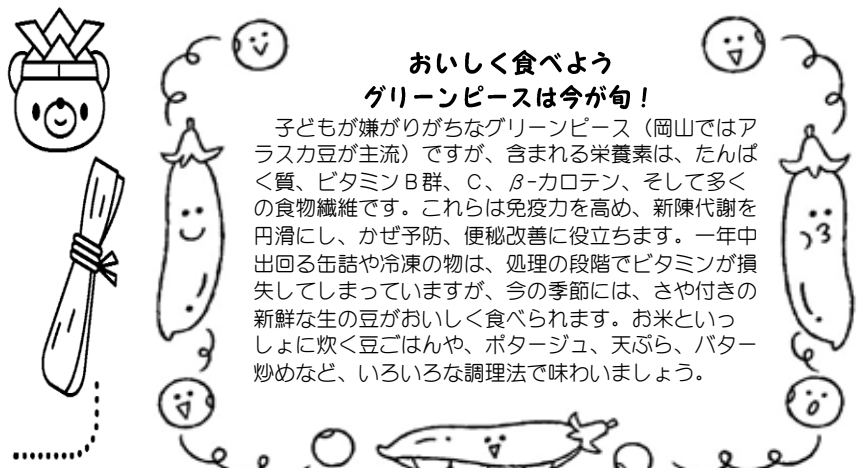 おいしく食べよう
グリーンピースは今が旬！
　子どもが嫌がりがちなグリーンピース（岡山ではア
ラスカ豆が主流）ですが、含まれる栄養素は、たんぱ
く質、ビタミンＢ群、Ｃ、β-カロテン、そして多く
の食物繊維です。これらは免疫力を高め、新陳代謝を
円滑にし、かぜ予防、便秘改善に役立ちます。一年中
出回る缶詰や冷凍の物は、処理の段階でビタミンが損
失してしまっていますが、今の季節には、さや付きの
新鮮な生の豆がおいしく食べられます。お米といっ
しょに炊く豆ごはんや、ポタージュ、天ぷら、バター
炒めなど、いろいろな調理法で味わいましょう。